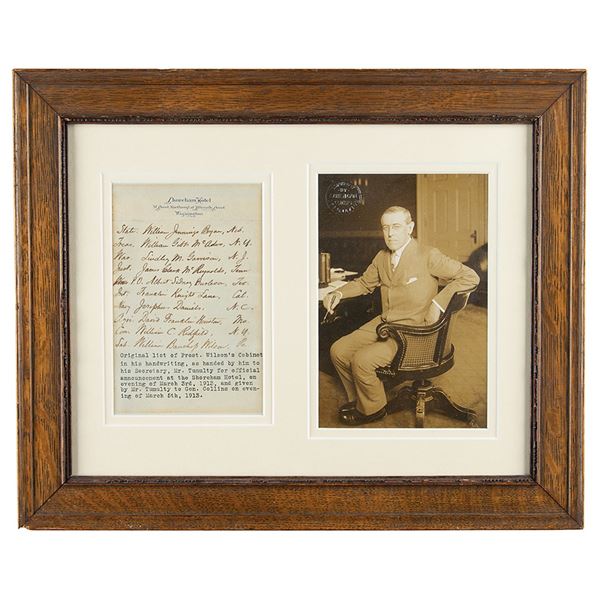 Shoreham Hotel
Washington
State. William Jennings Bryan, Neb.
Treas. William Gibbs McAdoo, N.Y.
War. Lindley M. Garrison, N.J.
Just. James Clark McReynolds, Tenn
P.O. Albert Sidney Burleson, Tex
Int. Franklin Knight Lane, Cal.
Navy Josephus Daniels, N.C.
Agri. David Franklin Houston, Mo.
Com. William C. Redfield, N.Y.
Lab. William Bauchop Wilson, Pa
Original list of Prest. Wilson's Cabinet
in his handwriting, as handed by him to
his Secretary, Mr. Tumulty for official
announcement at the Shoreham Hotel, on
evening of March 3rd, 1913, and given
by Mr. Tumulty to Gen. Collins on even-
ing of March 5th, 1913.